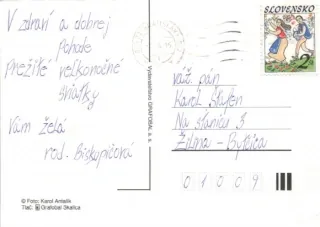 V zdraví a dobrej
Pohode
Prežité veľkonočné
sviatky
Vám želá
rod. Biskupičová
© Foto: Karol Antalík
Tlač: Grafobal Skalica
Vydavateľstvo GRAFOBAL a. s.
SLOVENSKO
váž. pán
Karol
Na stanicu 3
Žilina - Bytčica
01009